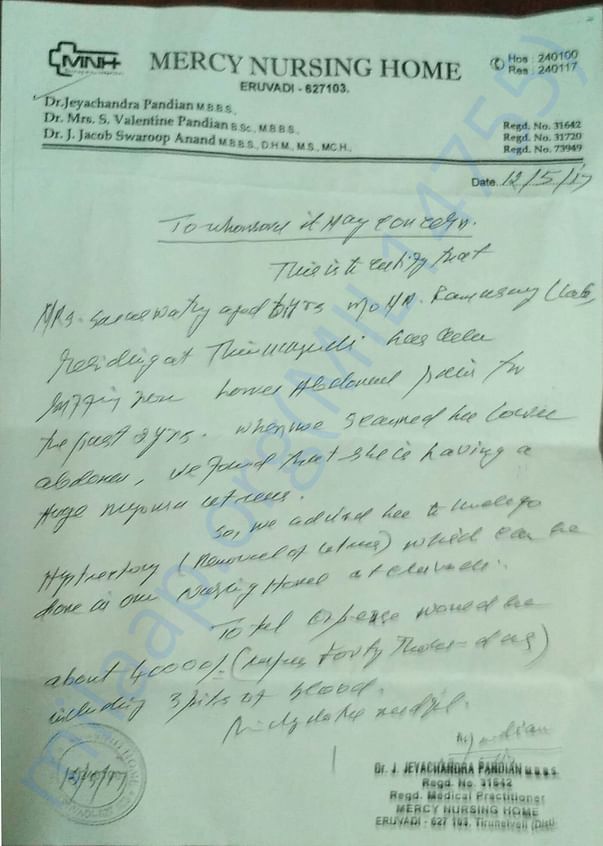 MNH
MERCY NURSING HOME
ERUVADI - 627103.
Hos : 240100
Res : 240117
Dr.Jeyachandra Pandian M.B.B.S.,
Dr. Mrs. S. Valentine Pandian B.Sc., M.B.B.S.,
Dr. J. Jacob Swaroop Anand M.B.B.S., D.H.M., M.S., MC.H.,
Regd. No. 31642
Regd. No. 31720
Regd. No. 73949
Date. 12/5/17
To whomsoever it May concern.
This is to certify that
Mrs. aged yrs Ramasamy (Late)
residing at has been
lower Abdomenal pain for
the past 2yrs. when we scanned her lower
abdomen, we found that she is having a
Huge uterus.
So, we advised her to undergo
(Removal of uterus) which can be
done in our Nursing Home at eruvadi.
Total expense would be
about 40000/- (rupees Forty Thousand)
including 3 of blood.
Kindly do the needful.
Dr. J. JEYACHANDRA PANDIAN M.B.B.S.
Regd. No. 31642
Regd. Medical Practitioner
MERCY NURSING HOME
ERUVADI - 627 103, Tirunelveli (Dist)
milaap.org(MIL147755)